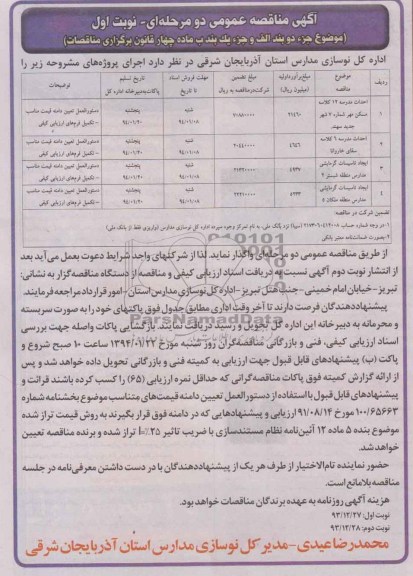 آگهی مناقصه عمومی دو مرحله‌ای- نوبت اول
(موضوع جزء دو بند الف و جزء یك بند ب ماده چهار قانون برگزاری مناقصات)
اداره كل نوسازی مدارس استان آذربایجان شرقی در نظر دارد اجرای پروژه‌های مشروحه زیر را
ردیف موضوع مناقصه مبلغ برآورد اولیه (میلیون ریال) مبلغ تضمین شركت در مناقصه به ریال مهلت فروش اسناد تا تاریخ تاریخ تسلیم پاكات به دبیرخانه اداره كل توضیحات
۱ احداث مدرسه ۱۲ كلاسه مسكن مهر شماره ۷ شهر جدید سهند شنبه ۹۴/۰۱/۰۸ پنجشنبه ۹۴/۰۱/۲۰ دستورالعمل تعیین دامنه قیمت مناسب - تكمیل فرم‌های ارزیابی كیفی
۲ احداث مدرسه ۶ كلاسه شنبه ۹۴/۰۱/۰۸ پنجشنبه ۹۴/۰۱/۲۰ دستورالعمل تعیین دامنه قیمت مناسب - تكمیل فرم‌های ارزیابی كیفی
۳ ایجاد تاسیسات گرمایشی مدارس منطقه شبستر ۲ شنبه ۹۴/۰۱/۰۸ پنجشنبه ۹۴/۰۱/۲۰ دستورالعمل تعیین دامنه قیمت مناسب - تكمیل فرم‌های ارزیابی كیفی
۴ ایجاد تاسیسات گرمایشی مدارس منطقه ملكان ۵ شنبه ۹۴/۰۱/۰۸ پنجشنبه ۹۴/۰۱/۲۰ دستورالعمل تعیین دامنه قیمت مناسب - تكمیل فرم‌های ارزیابی كیفی
تضمین شركت در مناقصه
۲-بصورت ضمانتنامه معتبر بانكی
از طریق مناقصه عمومی دو مرحله‌ای واگذار نماید. لذا از شركتهای واجد شرایط دعوت بعمل می‌آید بعد
از انتشار نوبت دوم آگهی نسبت به دریافت اسناد ارزیابی كیفی و مناقصه از دستگاه مناقصه گزار به نشانی:
تبریز -خیابان امام خمینی- جنب هتل تبریز -اداره كل نوسازی مدارس استان- امور قرارداد مراجعه فرمایند.
پیشنهاددهندگان فرصت دارند تا آخر وقت اداری مطابق جدول فوق پاكتهای خود را به صورت سربسته
و محرمانه به دبیرخانه این اداره كل تحویل و رسید دریافت نمایند. بازگشایی پاكات واصله جهت بررسی
اسناد ارزیابی كیفی، فنی و بازرگانی مناقصه‌گران روز شنبه مورخ ۱۳۹۴/۰۱/۲۲ ساعت ۱۰ صبح شروع و
پاكت (ب) پیشنهادهای قابل قبول جهت ارزیابی به كمیته فنی و بازرگانی تحویل داده خواهد شد و پس
از ارائه گزارش كمیته فوق پاكات مناقصه گرانی كه حداقل نمره ارزیابی (۶۵) را كسب كرده باشند قرائت و
پیشنهادهای قابل قبول با استفاده از دستورالعمل تعیین دامنه قیمت‌های متناسب موضوع بخشنامه شماره
۱۰۰/۶۵۶۶۳ مورخ ۹۱/۰۸/۱۴ ارزیابی و پیشنهادهایی كه در دامنه فوق قرار بگیرند به روش قیمت تراز شده
موضوع بنده ۵ ماده ۱۲ آئین‌نامه نظام مستندسازی با ضریب تاثیر ۲۵٪=i تراز شده و برنده مناقصه تعیین
خواهدشد.
حضور نماینده تام‌الاختیار از طرف هر یك از پیشنهاددهندگان با در دست داشتن معرفی‌نامه در جلسه
مناقصه بلامانع است.
هزینه آگهی روزنامه به عهده برندگان مناقصات خواهد بود.
نوبت اول: ۹۳/۱۲/۲۷
نوبت دوم: ۹۳/۱۲/۲۸
محمدرضا عیدی -مدیر كل نوسازی مدارس استان آذربایجان شرقی